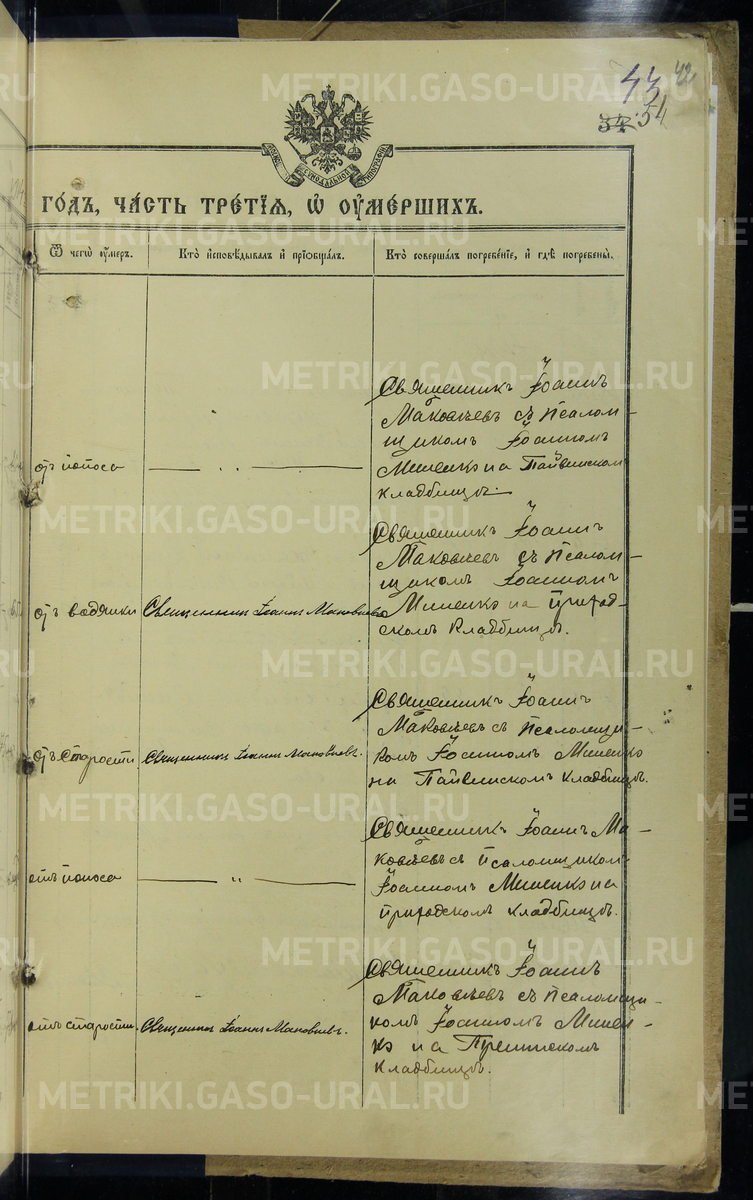 43 42
34 54
СѴНОДАЛЬНОЙ
ТИПОГРАФІИ
ГОДЪ, ЧАСТЬ ТРЕТІЯ, Ѡ ОУМЕРШИХЪ.
Ѿ чегѡ оумеръ.
Кто исповѣдывалъ и пріобщалъ.
Кто совершалъ погребеніе, и гдѣ погребены.
отъ поноса
— „ —
Священникъ Іоаннъ
Маковѣевъ съ Псалом-
щикомъ Іоанномъ
Миненко на
кладбищѣ.
отъ водянки
Священникъ Іоаннъ Маковѣевъ
Священникъ Іоаннъ
Маковѣевъ съ Псалом-
щикомъ Іоанномъ
Миненко на Приход-
скомъ кладбищѣ.
отъ старости
Священникъ Іоаннъ Маковѣевъ.
Священникъ Іоаннъ
Маковѣевъ съ Псаломщи-
комъ Іоанномъ Миненко
на кладбищѣ.
отъ поноса
— „ —
Священникъ Іоаннъ Ма-
ковѣевъ съ Псаломщикомъ
Іоанномъ Миненко на
приходскомъ кладбищѣ.
отъ старости.
Священникъ Іоаннъ Маковѣевъ.
Священникъ Іоаннъ
Маковѣевъ съ Псаломщи-
комъ Іоанномъ Минен-
ко на
кладбищѣ.
METRIKI.GASO-URAL.RU